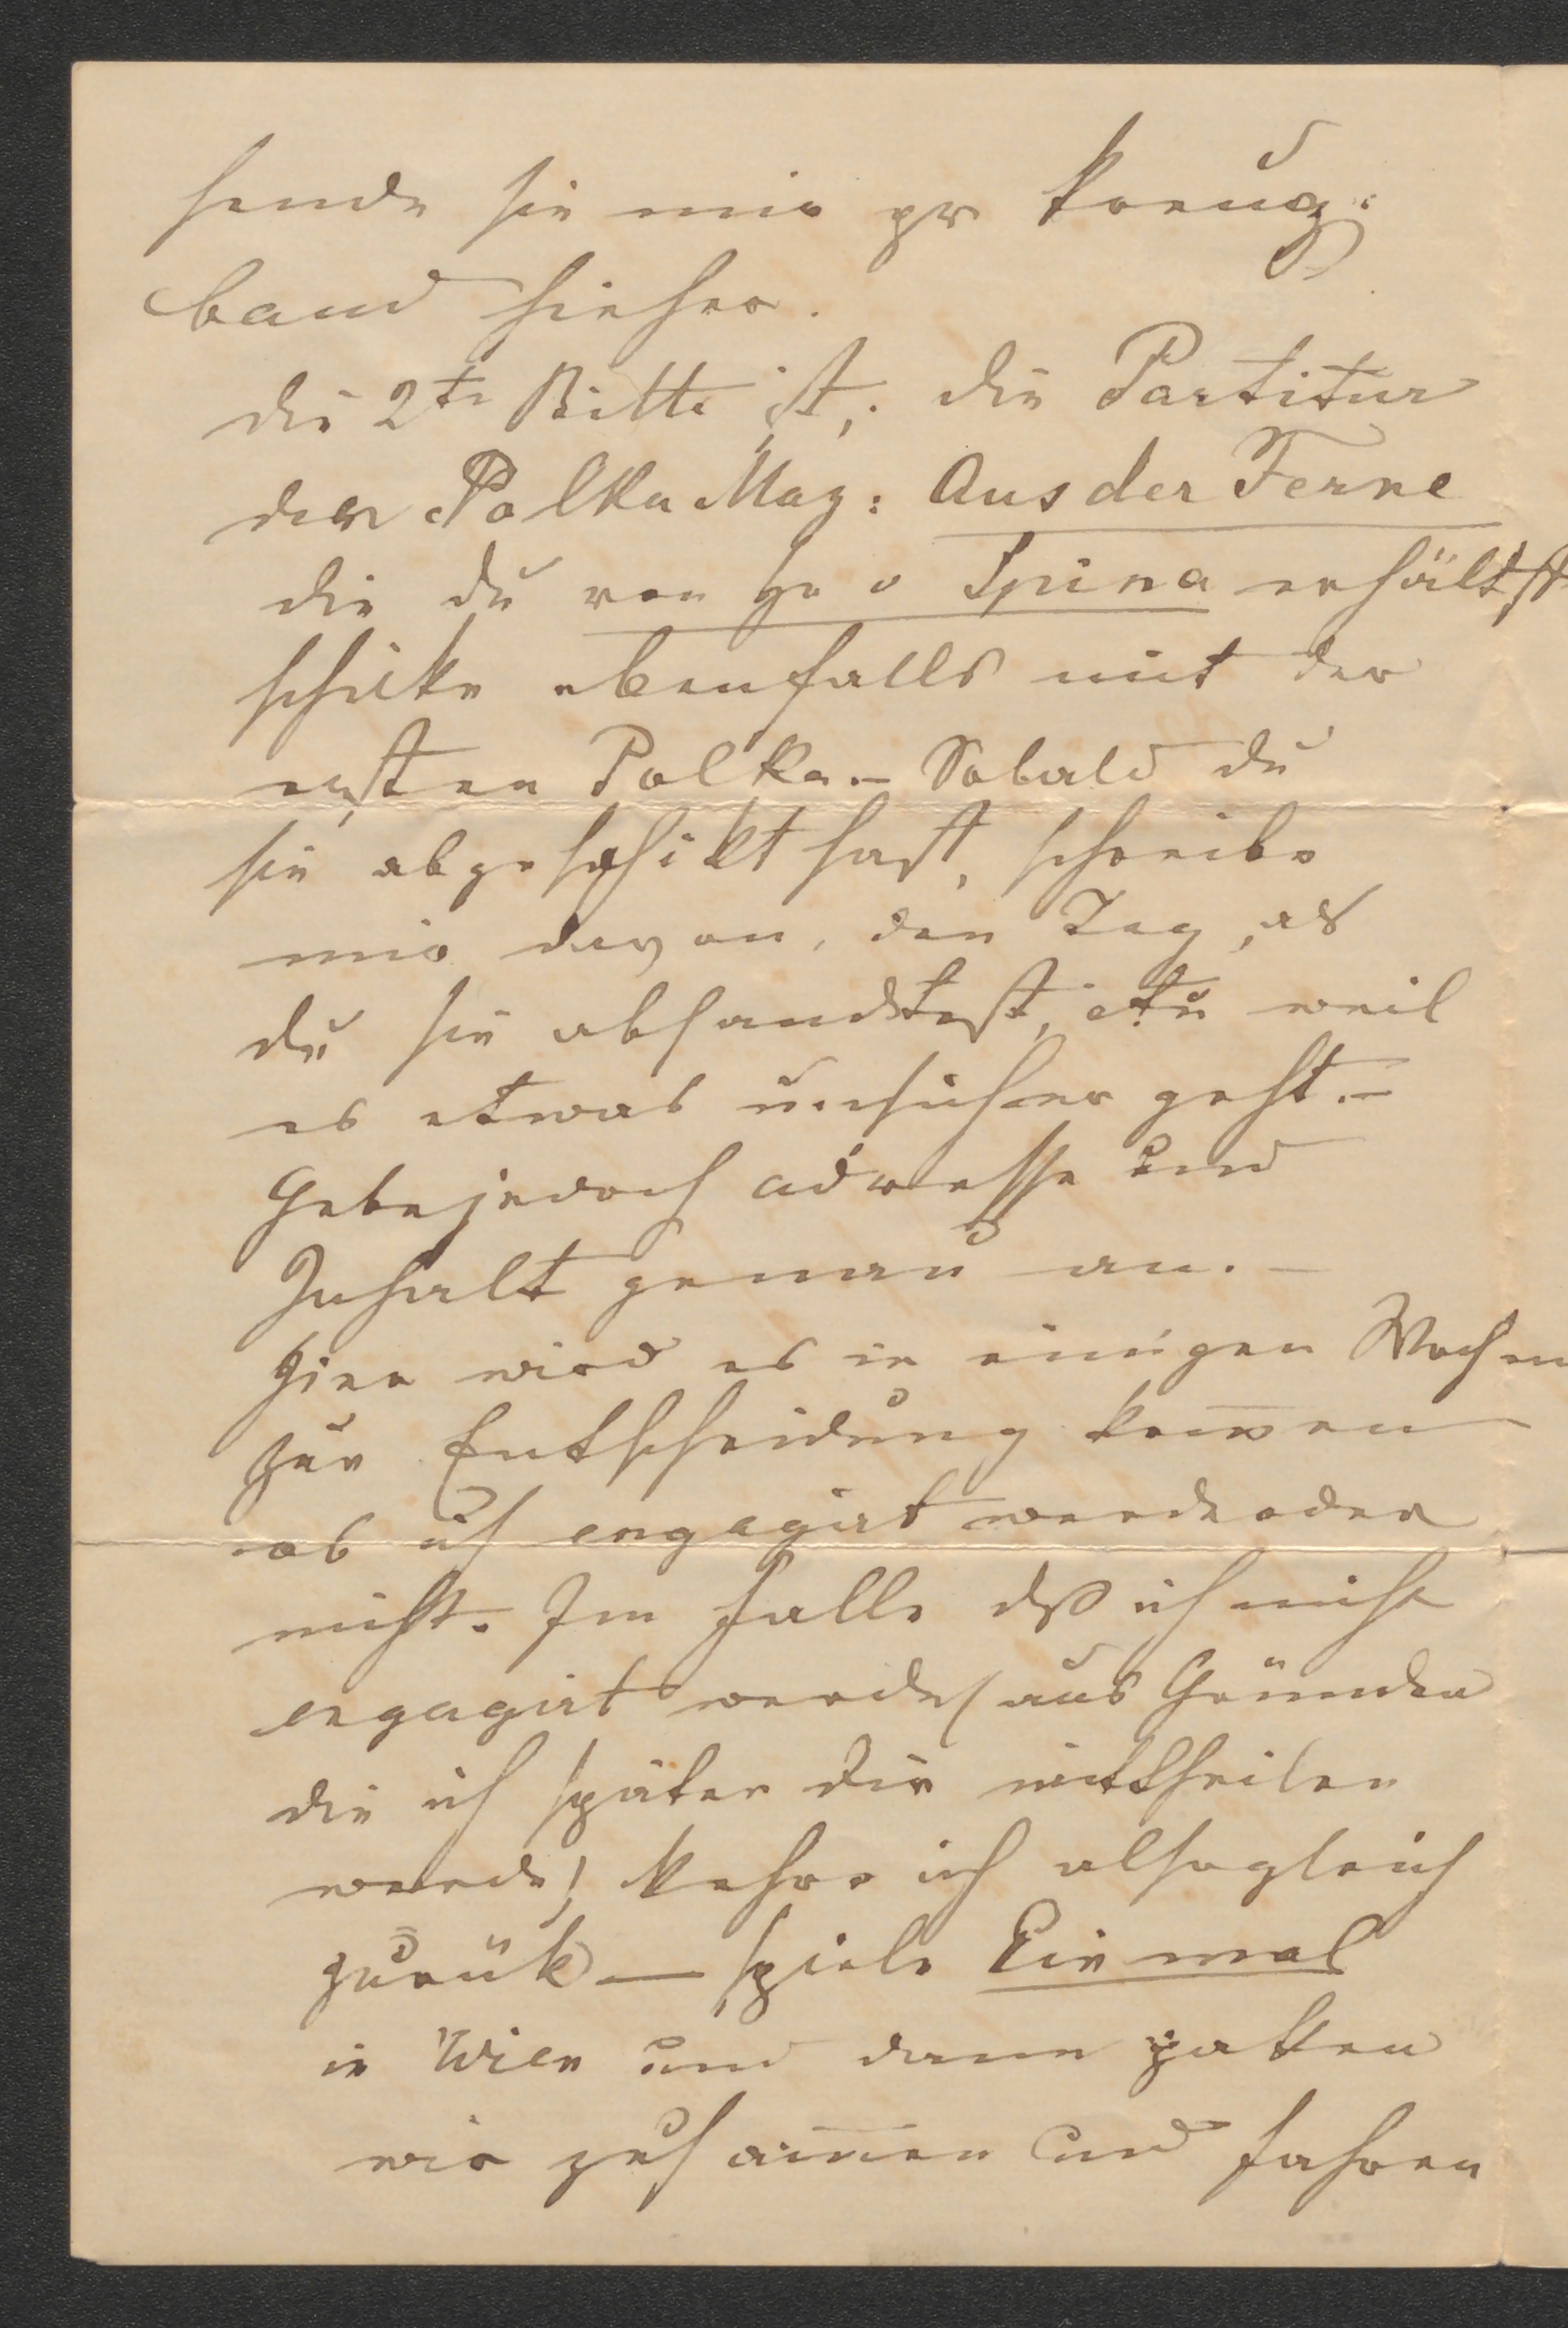 sende sie mir pr Kreuz:
band hieher.
die 2te Bitte ist; die Partitur
der Polka Maz: Aus der Ferne
die du von H v Spina erhältst
schicke ebenfalls mit der
ersten Polka. – Sobald du
sie abgeschikt hast, schreibe
mir davon, den Tag, als
du sie absandtest, weil
es etwas unsicher geht. –
Gebe jedoch adresse und
Inhalt genau an. –
Hier wird es in einigen Wochen
zur Entscheidung kom̅en
ob ich engagirt werde oder
nicht. Im Falle dß ich nicht
engagirt werde (aus Gründen
die ich später dir mittheilen
werde) kehre ich alsogleich
zurük — spiele Ein mal
in Wien und dann paken
wir zusam̅en und fahren